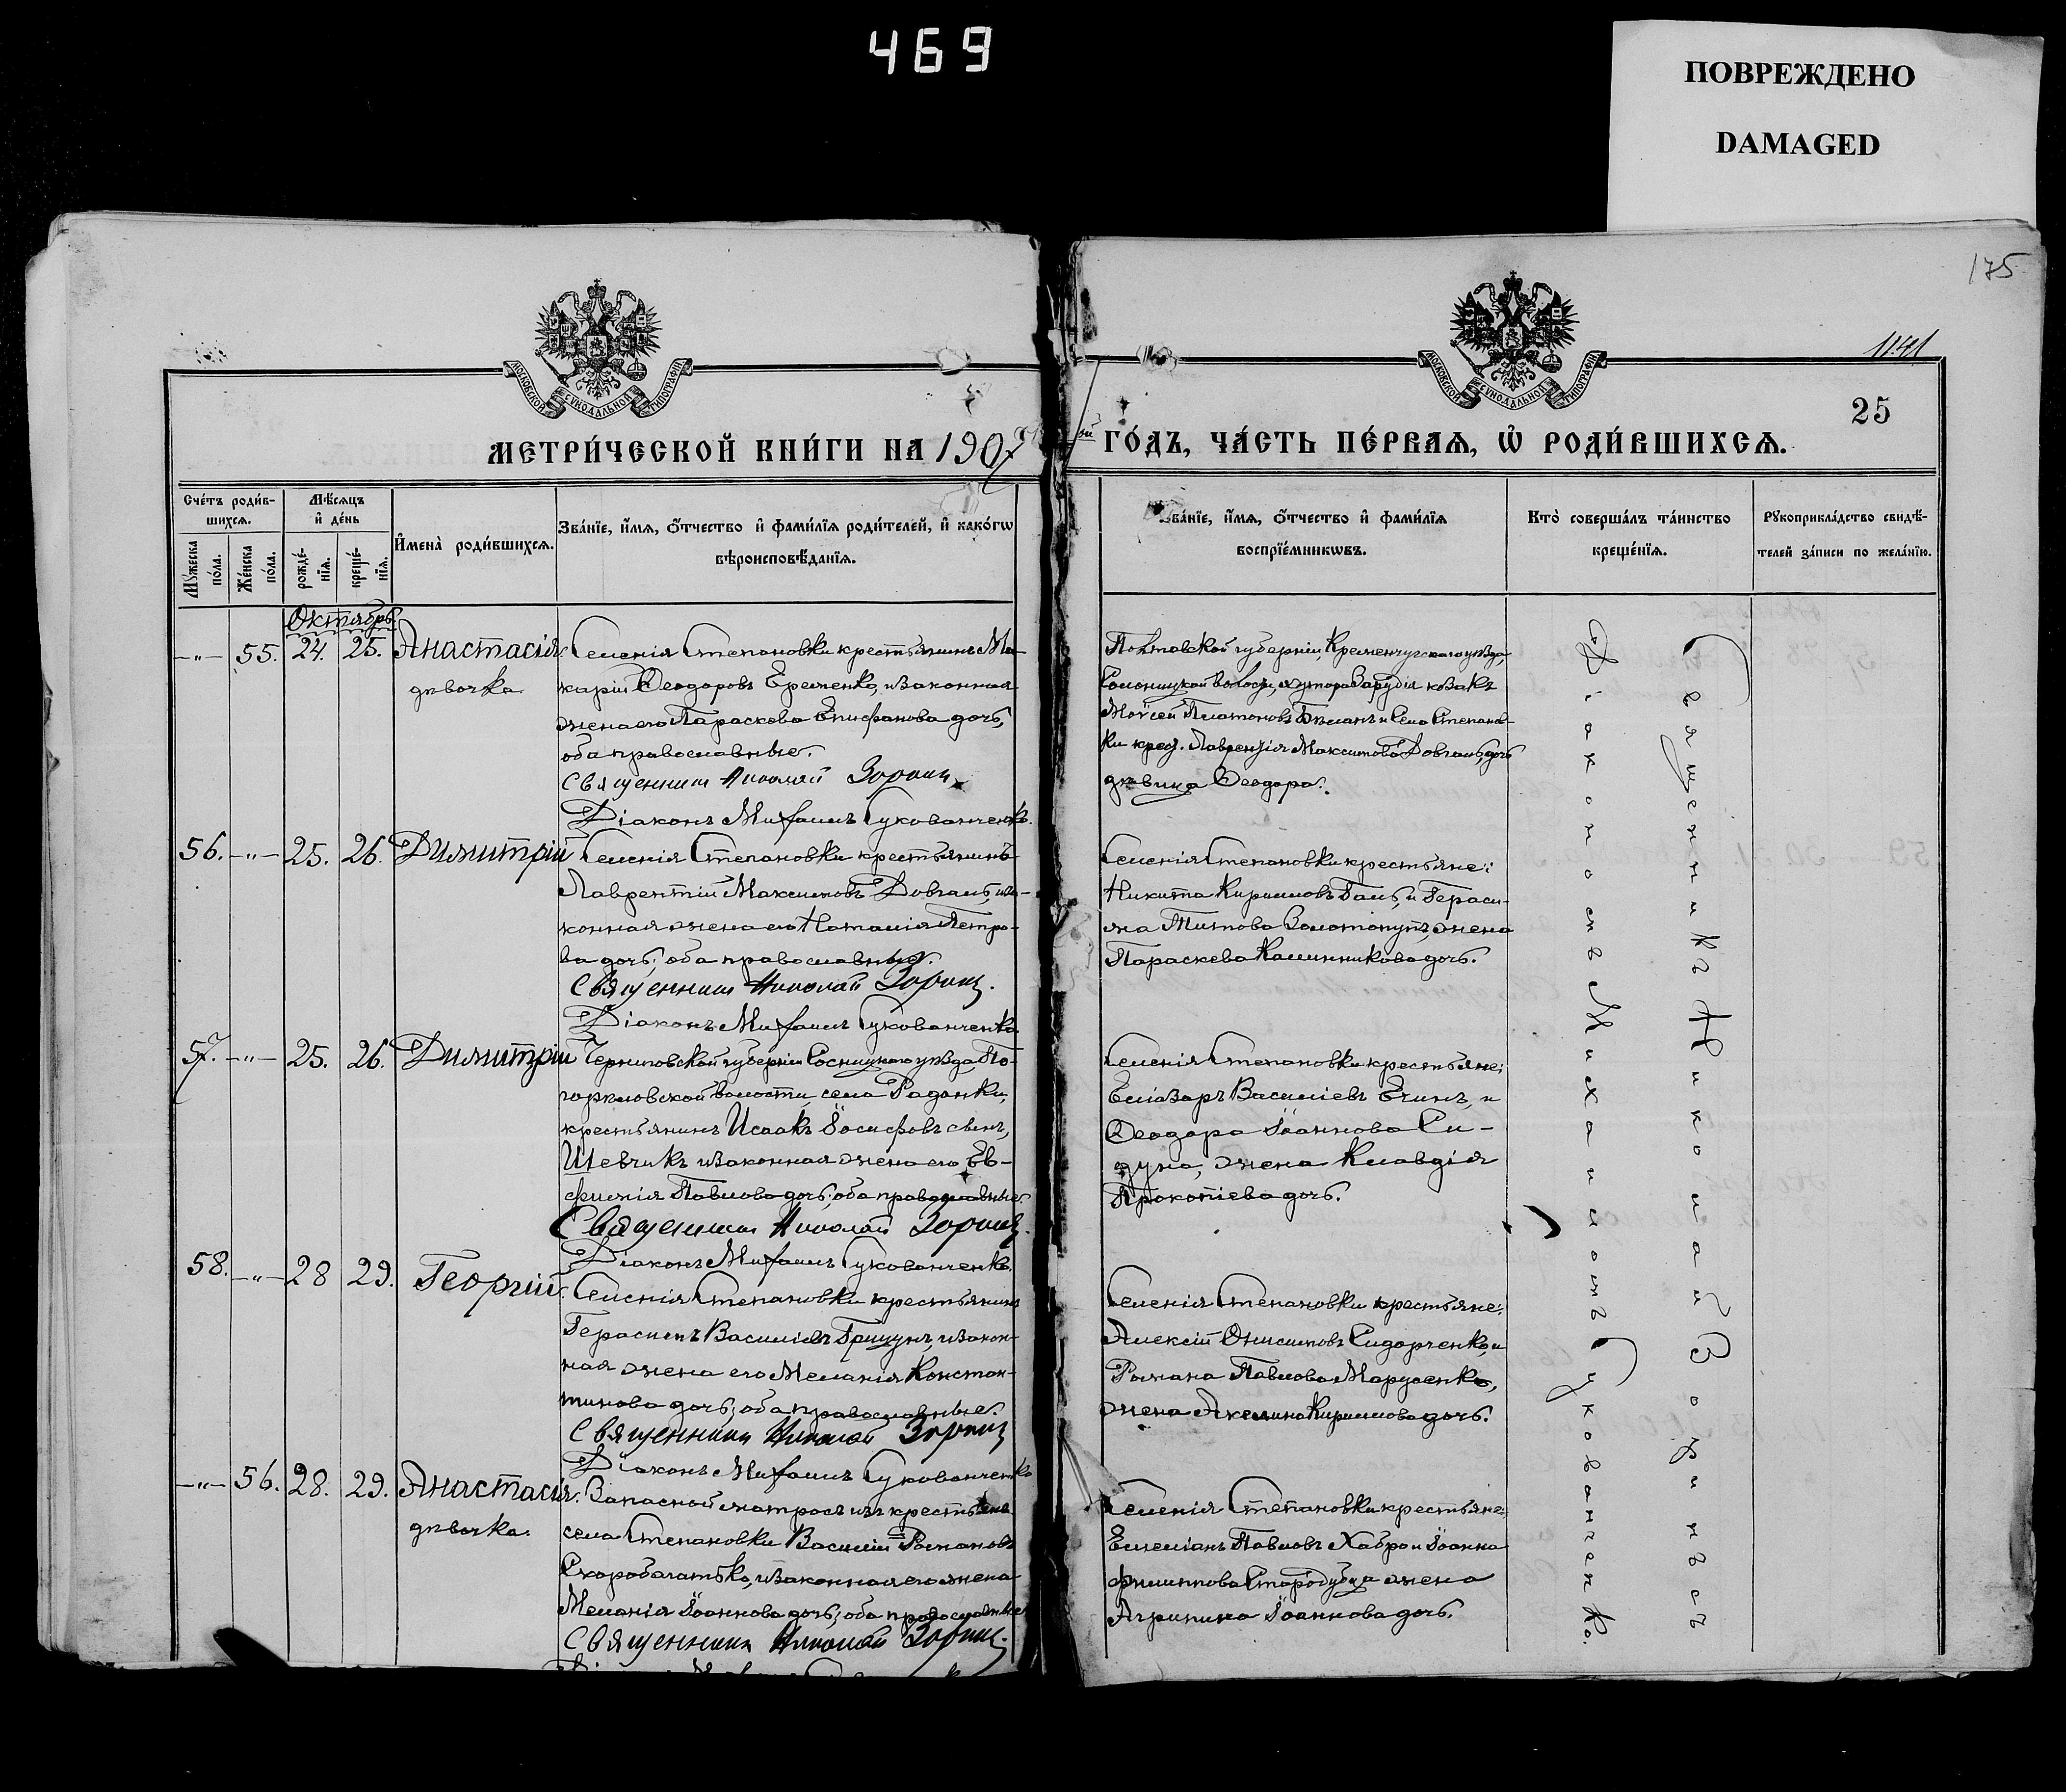 469
ПОВРЕЖДЕНО
DAMAGED
175
1141
25
МОСКОВСКОЙ СѴНОДАЛЬНОЙ ТИПОГРАФІИ
МОСКОВСКОЙ СѴНОДАЛЬНОЙ ТИПОГРАФІИ
МЕТРИ́ЧЕСКОЙ КНИ́ГИ НА 1907 ый ГО́ДЪ, ЧА́СТЬ ПЕ́РВАѦ, Ѡ҆ РОДИ́ВШИХСѦ.
Сче́тъ роди́в-
шихсѧ.
Мꙋ́жеска по́ла.
Же́нска по́ла.
Мѣ́сѧцъ
и҆ де́нь
рожде́-
нїѧ.
креще́-
нїѧ.
И҆мена̀ роди́вшихсѧ.
Зва́нїе, и҆́мѧ, ѻ҆́тчество и҆ фами́лїѧ роди́телей, и҆ како́гѡ
вѣроисповѣ́данїѧ.
Зва́нїе, и҆́мѧ, ѻ҆́тчество и҆ фами́лїѧ
воспрїе́мникѡвъ.
Кто̀ соверша́лъ та́инство
креще́нїѧ.
Рꙋкоприкла́дство свидѣ́-
телей за́писи по жела́нїю.
Октябрь
—"— 55. 24. 25. Анастасія
дѣвочка
Селенія Степановки крестьянинъ Ма-
карій Ѳеодоровъ Еременко, и законная
жена его Параскева Епифанова дочь,
оба православные.
Священникъ Николай Зоринъ
Діаконъ Михаилъ Гукованченко.
Полтавской губерніи, Кременчугскаго уѣзда,
волости, хутора Зарудія козакъ
Мойсей Платоновъ и села Степанов-
ки крес. Лаврентія Максимова Довгаль, дочь
дѣвица Ѳеодора.
56. —"— 25. 26. Димитрій
Селенія Степановки крестьянинъ
Лаврентій Максимовъ Довгаль, и за-
конная жена его Наталія Петро-
ва дочь; оба православные.
Священникъ Николай Зоринъ.
Діаконъ Михаилъ Гукованченко
Селенія Степановки крестьяне:
Никита Кирилловъ Галь, и Гераси-
ма Титова Золотопупъ, жена
Параскева Калинникова дочь.
57. —"— 25. 26. Димитрій
Черниговской губерніи Сосницкаго уѣзда
волости, села
крестьянинъ Исаакъ Іосифовъ сынъ,
Шевчикъ и законная жена его Ев-
фимія Павлова дочь; оба православные
Священникъ Николай Зоринъ.
Діаконъ Михаилъ Гукованченко.
Селенія Степановки крестьяне:
Еліазаръ Василіевъ и
Ѳеодора Іоаннова Си-
жена Клавдія
Прокопіева дочь.
58. —"— 28 29. Георгій
Селенія Степановки крестьянинъ
Герасимъ Василіевъ и закон-
ная жена его Меланія Констан-
тинова дочь; оба православные.
Священникъ Николай Зоринъ
Діаконъ Михаилъ Гукованченко
Селенія Степановки крестьяне:
Алексій Онисимовъ Сидорченко, и
Романа Павлова Марусенко,
жена Акелина Кириллова дочь.
—"— 56. 28. 29. Анастасія.
дѣвочка.
Запасной матросъ изъ крестьянъ
села Степановки Василій Романовъ
Скоробагатько, и законная его жена
Меланія Іоаннова дочь; оба православные
Священникъ Николай Зоринъ.
Селенія Степановки крестьяне:
Емеліанъ Павловъ Хабро и Іоанна
Филиппова Стародубца жена
Агрипина Іоаннова дочь.
Священникъ Николай Зоринъ съ
Діакономъ Михаиломъ Гукованченко.